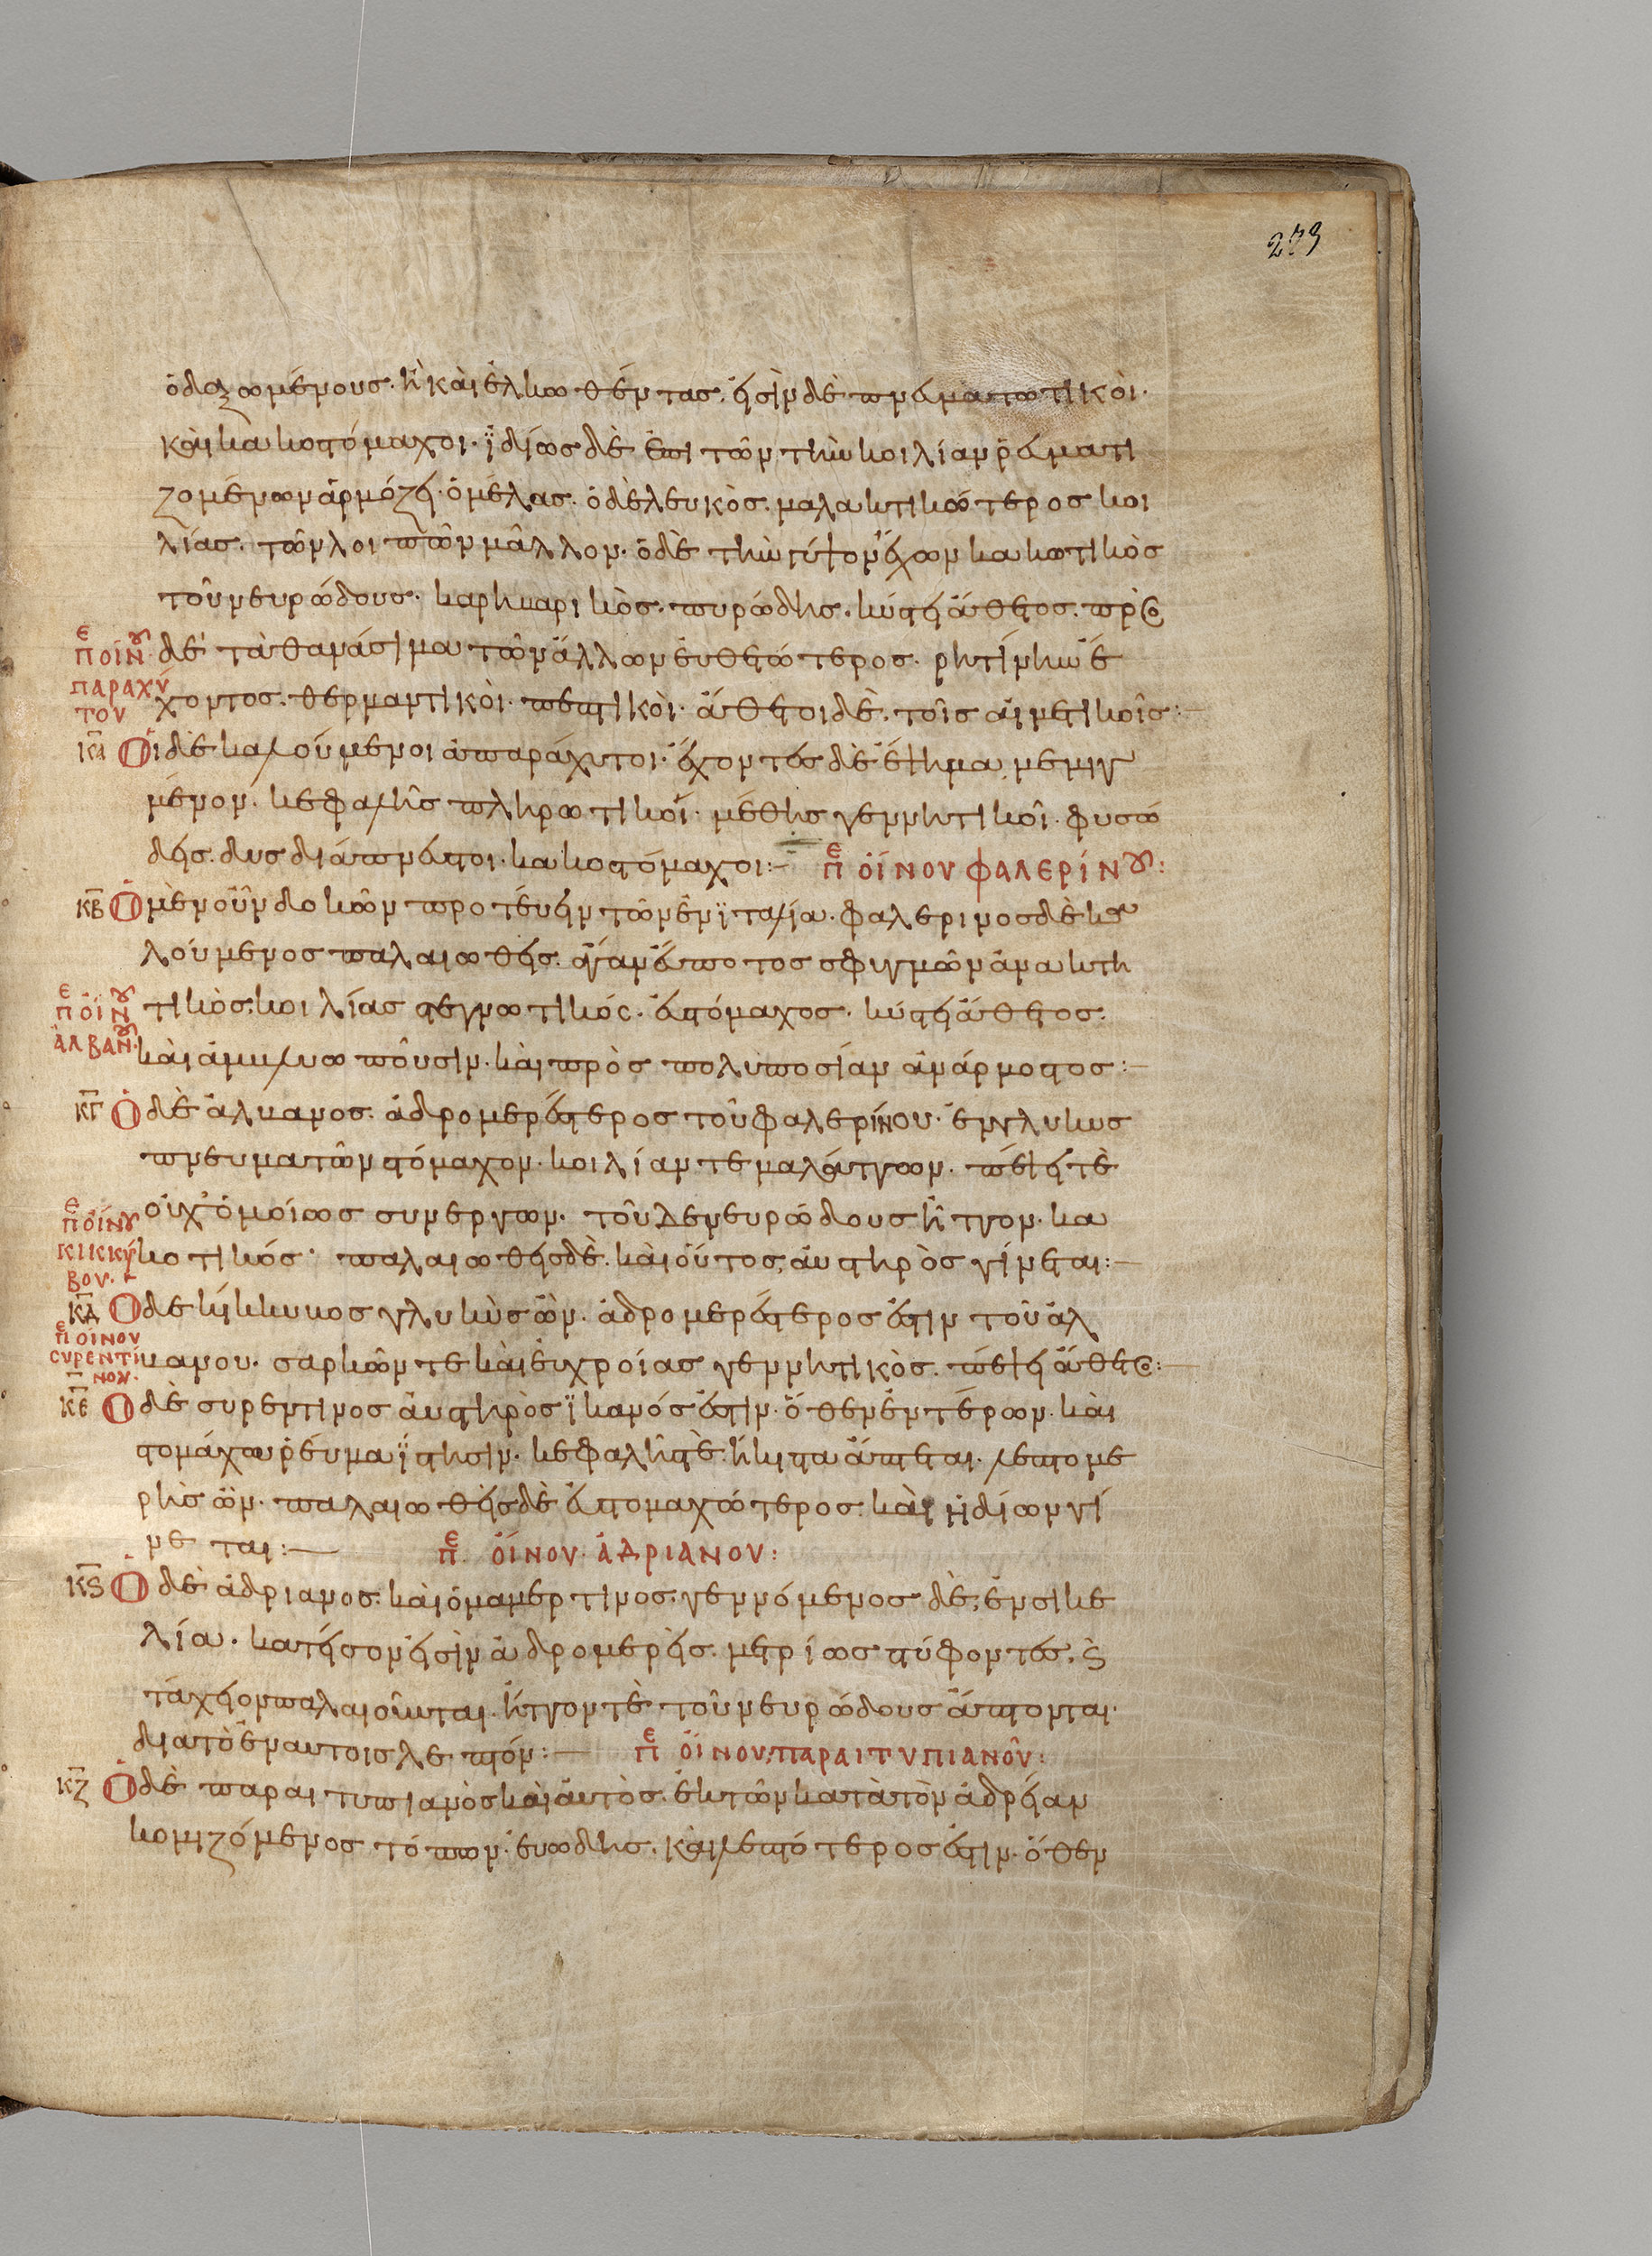 279
ὀδαξωμένους. ἢ καὶ ἑλκωθέντας. εἰσὶν δὲ πνευματωτικοὶ.
καὶ κακοστόμαχοι. ἰδίως δὲ ἐπὶ τῶν τὴν κοιλίαν ῥευματι
ζομένων ἁρμόζει. ὁ μέλας. ὁ δὲ λευκὸς. μαλακτικώτερος κοι
λίας. τῶν λοιπῶν μᾶλλον. ὁ δὲ τὴν γύψον ἔχων κακωτικὸς
τοῦ νευρώδους. καρηβαρικὸς. πυρώδης. κύστει ἄθετος. πρὸς
Περὶ οἴνου δὲ τὰ θανάσιμα τῶν ἄλλων εὐθετώτερος. ρητίνην ἔ
παραχύ
του χοντος. θερμαντικοὶ. πεπτικοὶ. ἄθετοι δὲ. τοῖς αἱμετικοῖς:
κα Οἱ δὲ καλούμενοι ἀπαράχυτοι. ἔχοντες δὲ ἕψημα μεμιγ
μένον. κεφαλῆς πληρωτικοί. μέθης γεννητικοὶ. φυσώ
δεις. δυσδιάπνευστοι. κακοστόμαχοι:— Περὶ οἴνου φαλερίνου:
κβ Ὁ μὲν οὖν δοκῶν πρωτεύειν τῶν ἐν ἰταλία. φαλερινος δὲ κα
λούμενος παλαιωθεὶς. εὐανάποτος σφιγμῶν ἀνακτη
Περὶ οἴνου τικὸς. κοιλίας στεγνωτικός. εὐστόμαχος. κύστει ἄθετος.
ἀλβανοῦ. καὶ ἀμβλυωποῦσιν. καὶ πρὸς πολυποσίαν ἀνάρμοστος:—
κγ Ὁ δὲ ἀλβανος. ἁδρομερέστερος τοῦ φαλερίνου. ἔνγλυκυς
πνευματῶν στόμαχον. κοιλίαν τε μαλάττων. πέψει τὲ
Περὶ οἴνου οὐχ ὁμοίως συνεργων. τοῦ δὲ νευρώδους ἧττον. κα
κικκύ κοτικός. παλαιωθεὶς δὲ. καὶ οὗτος, αὐστηρὸς γίνεται:—
βου.
κδ Ὁ δὲ κήκυκος γλυκὺς ὢν. ἁδρομερέστερος ἐστιν τοῦ ἀλ
Περὶ οἴνου
συρεντί βανου. σαρκῶν τε καὶ εὐχροίας γεννητικὸς. πέψει ἄθετος:—
νου.
κε Ὁ δὲ συρεντινος αὐστηρὸς ἱκανός ἐστιν. ὅθεν ἐντέρων. καὶ
στομάχου ῥεύμα ἵστησιν. κεφαλῆς τὲ. ἥκιστα ἅπτεται. λεπτομε
ρὴς ὤν. παλαιωθεὶς δὲ εὐστομαχώτερος. καὶ ἡδίων γί
νεται:— Περὶ οἴνου ἀδριανοῦ:
κς Ὁ δὲ ἀδριανος. καὶ ὁ μαμερτινος. γεννόμενος δὲ, ἐν σικε
λία. κατ' εἶσον εἰσὶν ἁδρομερεὶς. μετρίως στύφοντες, καὶ
τάχειον παλαιοῦνται. ἧττον τὲ τοῦ νευρώδους ἅπτονται.
διὰ τὸ ἐν αυτοις λεπτόν:— Περὶ οἴνου παραιτυπιανοῦ:
κζ Ὁ δὲ παραιτυπιανὸς καὶ αὐτὸς. ἐκ τῶν κατὰ τὸν ἀδρείαν
κομιζόμενος τόπων. εὐώδης. καὶ λεπτότερος ἐστιν. ὅθεν